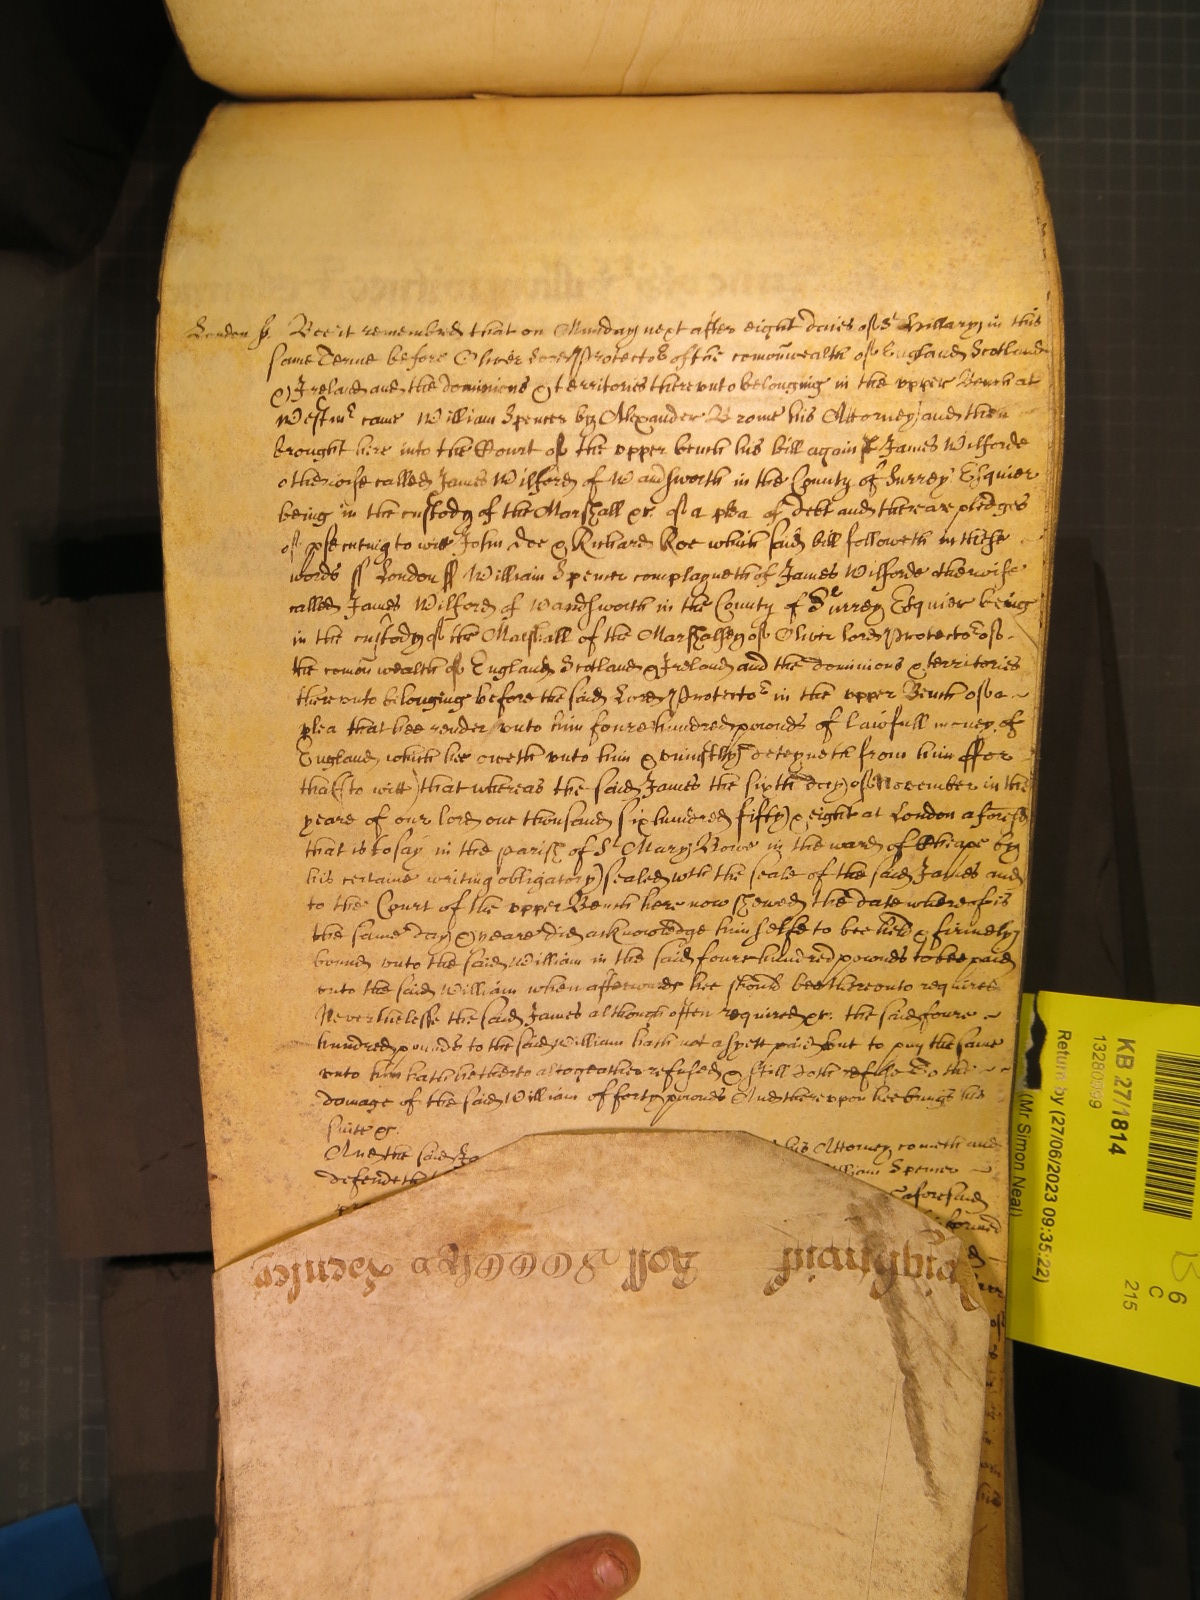 London ss. Bee it remembred that on Munday next after eight daies of St Hillary in this
same Terme before Oliver Lord Protector of the comonwealth of England Scotland
& Ireland and the dominions & territories thereunto belonging in the upper Bench at
Westmr came William Spencer by Alexander Brome his Attorney and then
brought here into the Court of the upper bench his bill against James Wilforde
otherwise called James Wilford of Wandsworth in the County of Surrey Esquier
being in the custody of the Marshall &c. of a plea of debt and there are pledges
of psecuting to witt John Doe & Richard Roe which said bill followeth in these
words ss London ss William Spencer complayneth of James Wilforde otherwise
called James Wilford of Wandsworth in the County of Surrey Esquier being
in the custody of the Marshall of the Marshalsey of Oliver lord Protector of
the comon wealth of England Scotland & Ireland and the dominions & territories
thereunto belonging before the said Lord Protector in the upper Bench of a
plea that hee render unto him foure hundred pounds of lawfull money of
England which hee oweth unto him & uniustly deteyneth from him ffor
that (to witt) that whereas the said James the sixth day of November in the
yeare of our lord one thousand six hundred fifty & eight at London aforesd
that is to say in the parish of St Mary Bowe in the ward of Cheape by
his certaine writing obligatory sealed with the seale of the said James and
to the Court of the upper Bench here now shewed the date whereof is
the same day & yeare did acknowledge himselfe to bee held & firmely
bound unto the said William in the said foure hundred pounds to bee paid
unto the said William when afterwards hee should bee thereunto required
Neverthelesse the said James although often required &c. the said foure
hundred pounds to the said William hath not as yett paid but to pay the same
unto him hath hetherto altogeather refused & still doth refuse To the
damage of the said William of forty pounds And thereupon hee brings his
suite &c.
And the said Ja his Attorney cometh and
defendeth William Spencer
aforesaid
Roll Spencer
KB 27/1814
13280999
Return by (27/06/2023 09:35:22)
(Mr Simon Neal)
6
C
215